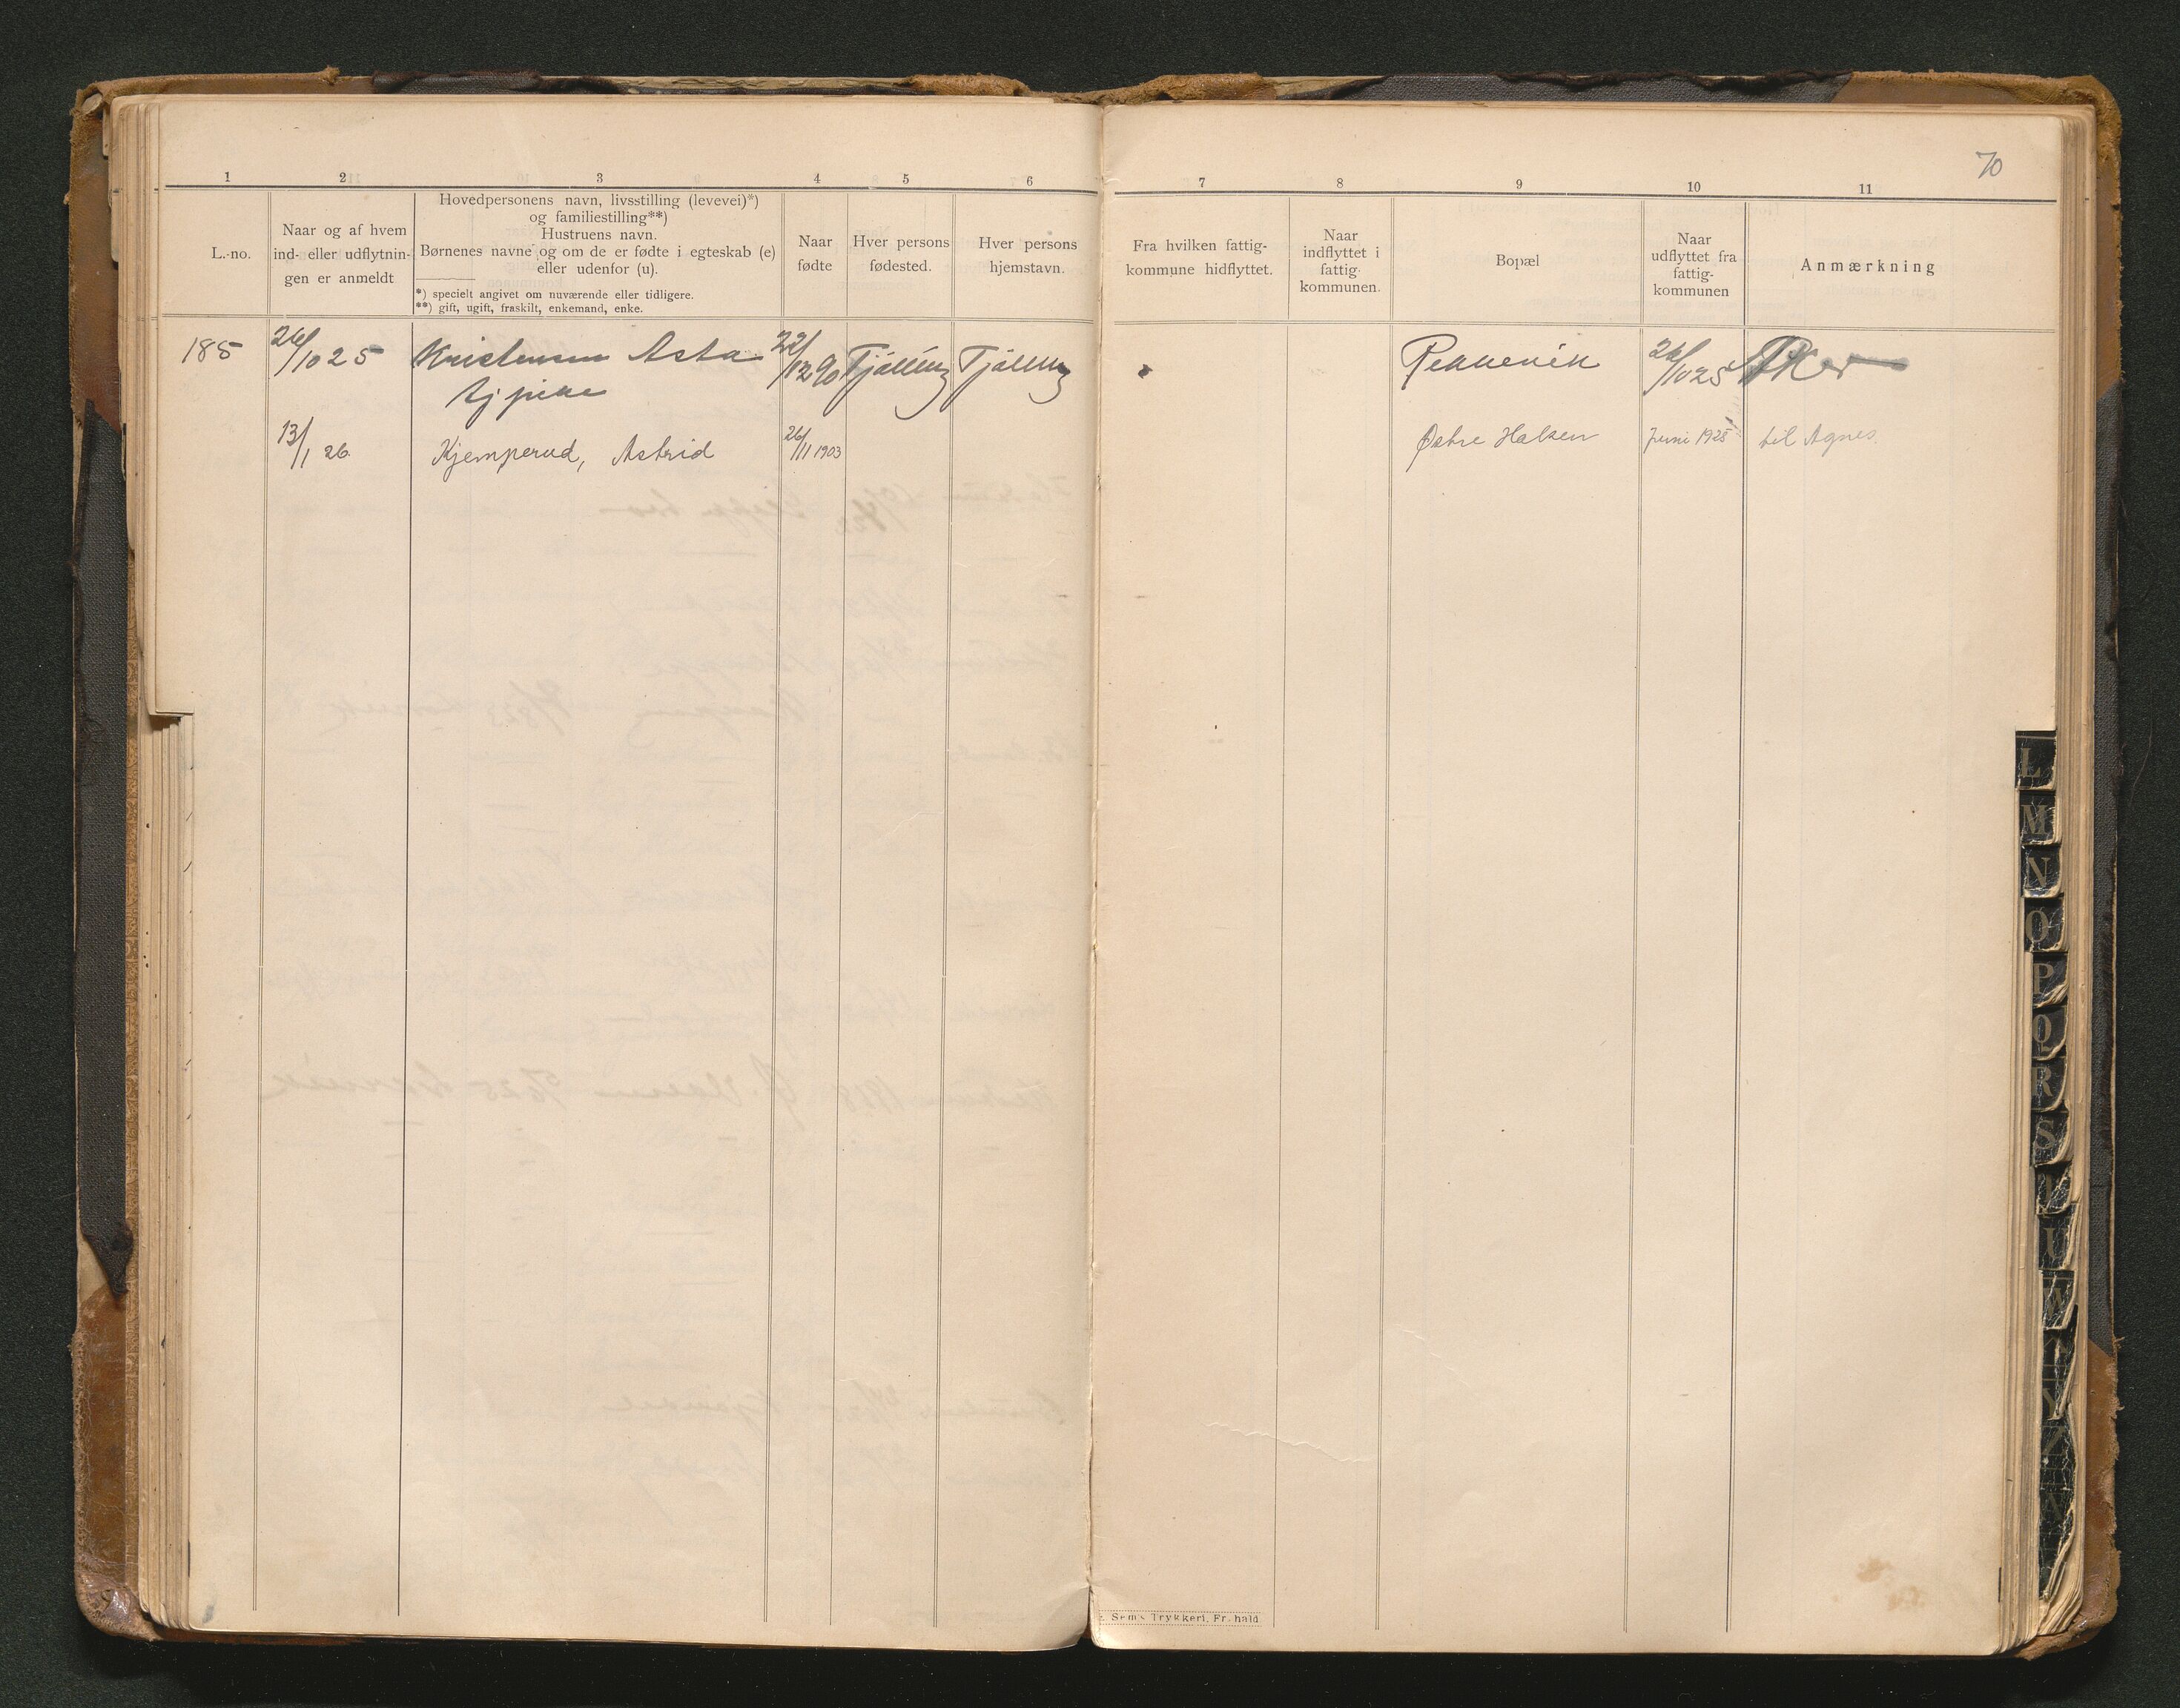 70
1 2 3 4 5 6 7 8 9 10 11
L.-no.
Naar og af hvem
ind- eller udflytnin-
gen er anmeldt
Hovedpersonens navn, livsstilling (levevei)*)
og familiestilling**)
Hustruens navn.
Børnenes navne og om de er fødte i egteskab (e)
eller udenfor (u).
*) specielt angivet om nuværende eller tidligere.
**) gift, ugift, fraskilt, enkemand, enke.
Naar
fødte
Hver persons
fødested.
Hver persons
hjemstavn.
Fra hvilken fattig-
kommune hidflyttet.
Naar
indflyttet i
fattig-
kommunen.
Bopæl
Naar
udflyttet fra
fattig-
kommunen
Anmærkning
185 26/10 25 Kristensen Asta 22/12 90 Tjölling Tjölling 26/10 25 Aker
Tj pike
13/1 26 Kjemperud, Astrid 26/11 1903 Østre Halsen Juni 1925 til Agnes
L
M
N
O
P
Q
R
S
T
U
Y
Z
Sem's Trykkeri, Fr.hald